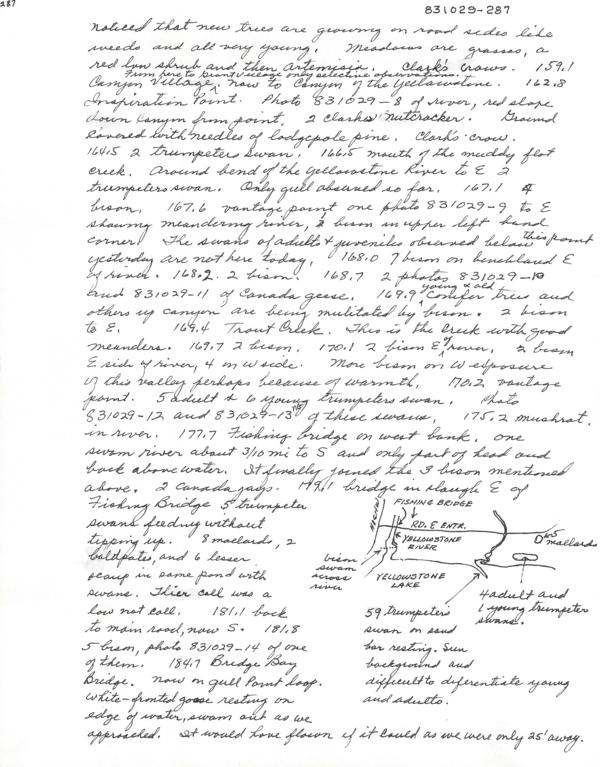 287
831029-287
noticed that new trees are growing on road sides like
weeds and all very young. Meadows are grasses, a
red low shrub and then Artemisia. Clark's Crows. 159.1
From here to Grant Village only selective observations.
Canyon Village, now to Canyon of the Yellowstone. 162.8
Inspiration Point. Photo 831029-8 of river, red slope
down Canyon from point, 2 Clarks' Nutcracker. Ground
covered with needles of lodgepole pine. Clark's crow.
164.5 2 trumpeters swan. 166.5 mouth of the muddy flat
creek. Around bend of the Yellowstone River to E 2
trumpeters swan. Only gull observed so far. 167.1 4
bison. 167.6 vantage point one photo 831029-9 to E
showing meandering river, bison in upper left hand
corner. The swans of adults & juveniles observed below this point
yesterday are not here today. 168.0 7 bison on benchland E
of river. 168.2. 2 bison. 168.7 2 photos 831029-10
and 831029-11 of Canada geese. 169.9 young & old conifer trees and
others up canyon are being mutilated by bison. 2 bison
to E. 169.4 Trout Creek. This is the creek with good
meanders. 169.7 2 bison. 170.1 2 bison E of river, 2 bison
E side of river, 4 on W side. More bison on W exposure
of this valley perhaps because of warmth. 170.2 vantage
point. 5 adult & 6 young trumpeters swan. Photo
831029-12 and 831029-13 of these swans. 175.2 muskrat
in river. 177.7 Fishing bridge on west bank. one
swam river about 3/10 mi to S and only part of head and
back above water. It finally joined the 3 bison mentioned
above. 2 Canada jays. 179.1 bridge in slough E of
Fishing Bridge 5 trumpeter
swans feeding without
tipping up. 8 mallards, 2
baldpates, and 6 lesser
scaup in same pond with
swans. Their call was a
low not call. 181.1 back
to main road, now S. 181.8
5 bison, photo 831029-14 of one
of them. 184.7 Bridge Bay
Bridge. now on gull Point loop.
White-fronted goose resting on
edge of water, swam out as we
approached. It would have flown if it could as we were only 25' away.
FISHING BRIDGE
RD. E ENTR.
YELLOWSTONE
RIVER
mallards
bison
swam
across
river
YELLOWSTONE
LAKE
4 adult and
1 young trumpeter
swans.
59 trumpeters
swan on sand
bar resting. Sun
background and
difficult to diferentiate young
and adults.